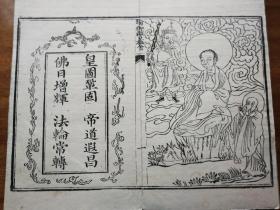 皇圖鞏固
帝道遐昌
佛日增輝
法輪常轉